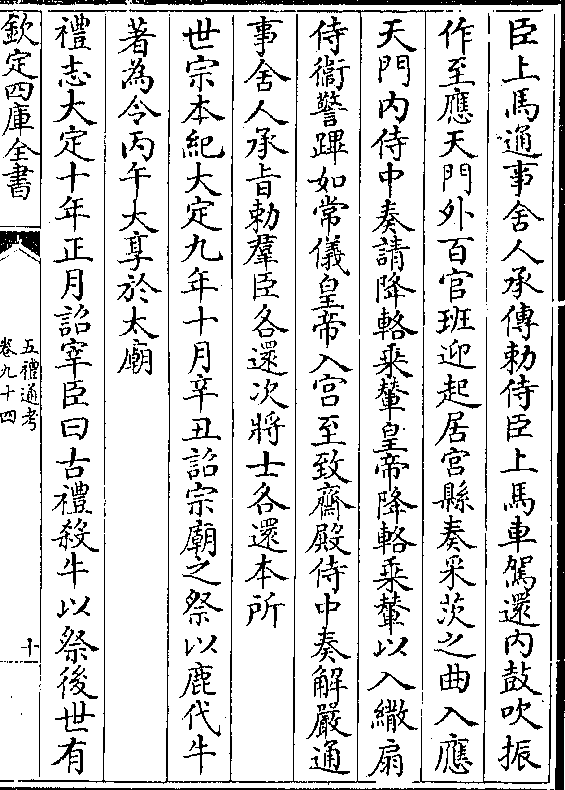 臣上馬通事舍人承傳勅侍臣上馬車駕還内鼓吹振
作至應天門外百官班迎起居宫縣奏采茨之曲入應
天門内侍中奏請降輅乘輦皇帝降輅乘輦以入繖扇
侍衛警蹕如常儀皇帝入宫至致齋殿侍中奏解嚴通
事舍人承旨勅羣臣各還次將士各還本所
世宗本紀大定九年十月辛丑詔宗廟之祭以鹿代牛
著為令丙午大享於太廟
禮志大定十年正月詔宰臣曰古禮殺牛以祭後世有
欽定四庫全書
五禮通考
卷九十四
十